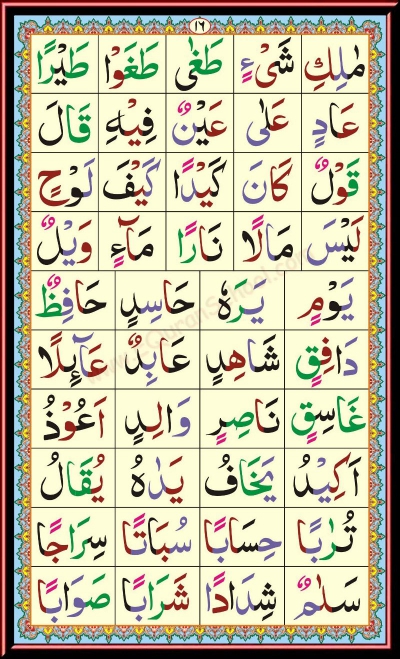 ١٦
مٰلِكِ شَیْءٍ طَغٰی طَغَوْا طَیْرًا
عَادٍ عَلٰی عَیْنٌ فِیْهِ قَالَ
قَوْلٌ كَانَ كَیْدًا كَیْفَ لَوْحٍ
لَیْسَ مَالًا نَارًا مَآءٍ وَیْلٌ
یَوْمٍ یَرَهٗ حَاسِدٍ حَافِظٌ
دَافِقٍ شَاهِدٍ عَابِدٌ عَآئِلًا
غَاسِقٍ نَاصِرٍ وَالِدٍ اَعُوْذُ
اَكِیْدُ یَخَافُ یَدٰهُ یُقَالُ
تُرٰبًا حِسَابًا سُبَاتًا سِرَاجًا
سَلٰمٌ شِدَادًا شَرَابًا صَوَابًا